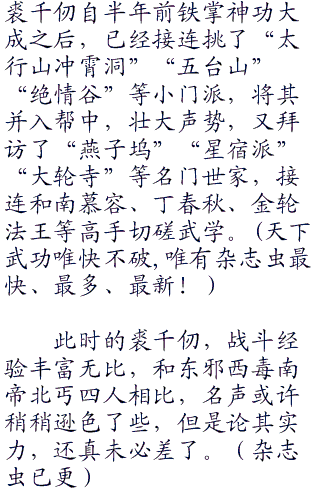 裘千仞自半年前铁掌神功大
成之后，已经接连挑了“太
行山冲霄洞”“五台山”
“绝情谷”等小门派，将其
并入帮中，壮大声势，又拜
访了“燕子坞”“星宿派”
“大轮寺”等名门世家，接
连和南慕容、丁春秋、金轮
法王等高手切磋武学。(天下
武功唯快不破,唯有杂志虫最
快、最多、最新！）
此时的裘千仞，战斗经
验丰富无比，和东邪西毒南
帝北丐四人相比，名声或许
稍稍逊色了些，但是论其实
力，还真未必差了。（杂志
虫已更）